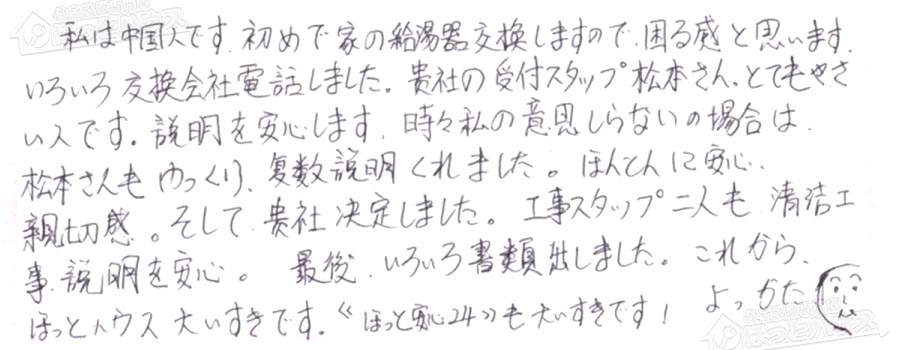 私は中国人です、初めで家の給湯器交換しますので、困る感と思います、
いろいろ交換会社電話しました。貴社の受付スタップ松本さん、とてもやさ
い人です。説明を安心します、時々私の意思しらないの場合は、
松本さんもゆっくり、复数説明くれました。ほんとんに安心、
親切感。そして、貴社決定しました。工事スタップ二人も清洁工
事、説明を安心。 最後、いろいろ書類出しました。これから、
ほっとハウス大いすきです。《ほっと安心24》も大いすきです! よっかた